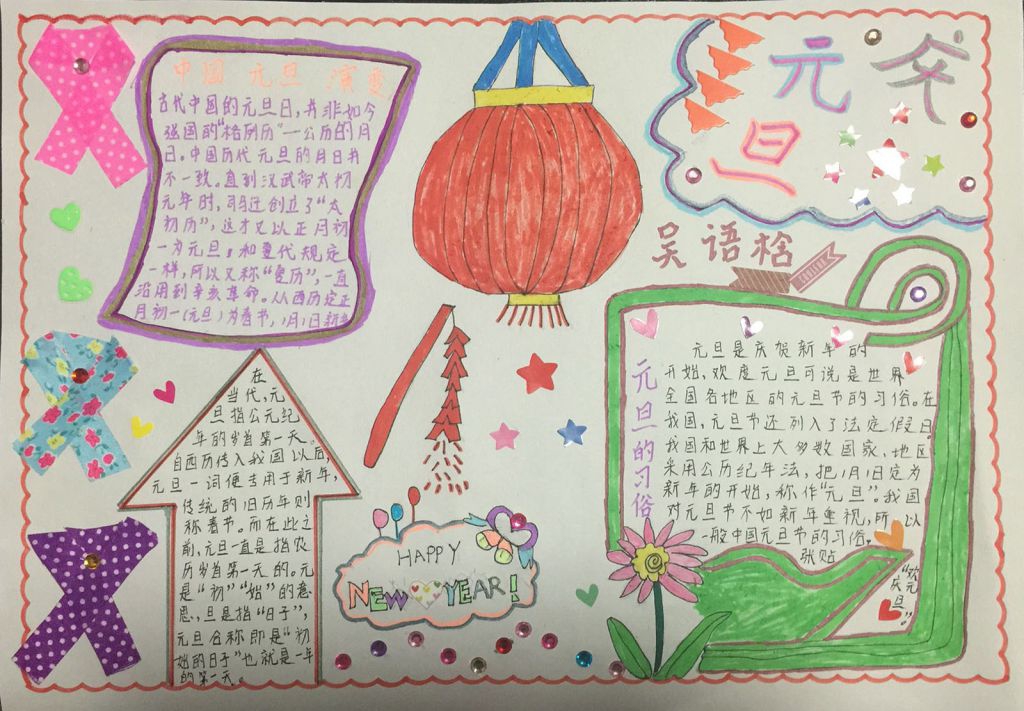 中国 元旦 演变
古代中国的元旦日，并非如今
强国的“格列历”一公历的月
日。中国历代元旦的月日并
不一致。直到汉武帝太初
元年时，司马迁创立了“太
初历”，这才又以正月初
一为元旦。和夏代规定
一样，所以又称“夏历”，一直
沿用到辛亥革命。从西历定正
月初一（元旦）为春节，1月1日新
元旦
吴语
元旦的习俗
元旦是庆贺新年的
开始，欢度元旦可说是世界
全国各地区的元旦节的习俗。在
我国，元旦节还列入了法定假日。
我国和世界上大多数国家、地区
采用公历纪年法，把1月1日定为
新年的开始，称作“元旦”。我国
对元旦节不如新年重视，所以
一般中国元旦节的习俗，
张贴
“欢
庆元
旦”。
在
当代，元
旦指公元纪
年的岁首第一天。
自西历传入我国以后，
元旦一词便专用于新年，
传统的旧历年则
称春节。而在此之
前，元旦一直是指农
历岁首第一天的。元
是“初”“始”的意
思，旦是指“日子”，
元旦合称即是“初
始的日子”也就是一年
的第一天。
HAPPY
NEW YEAR!